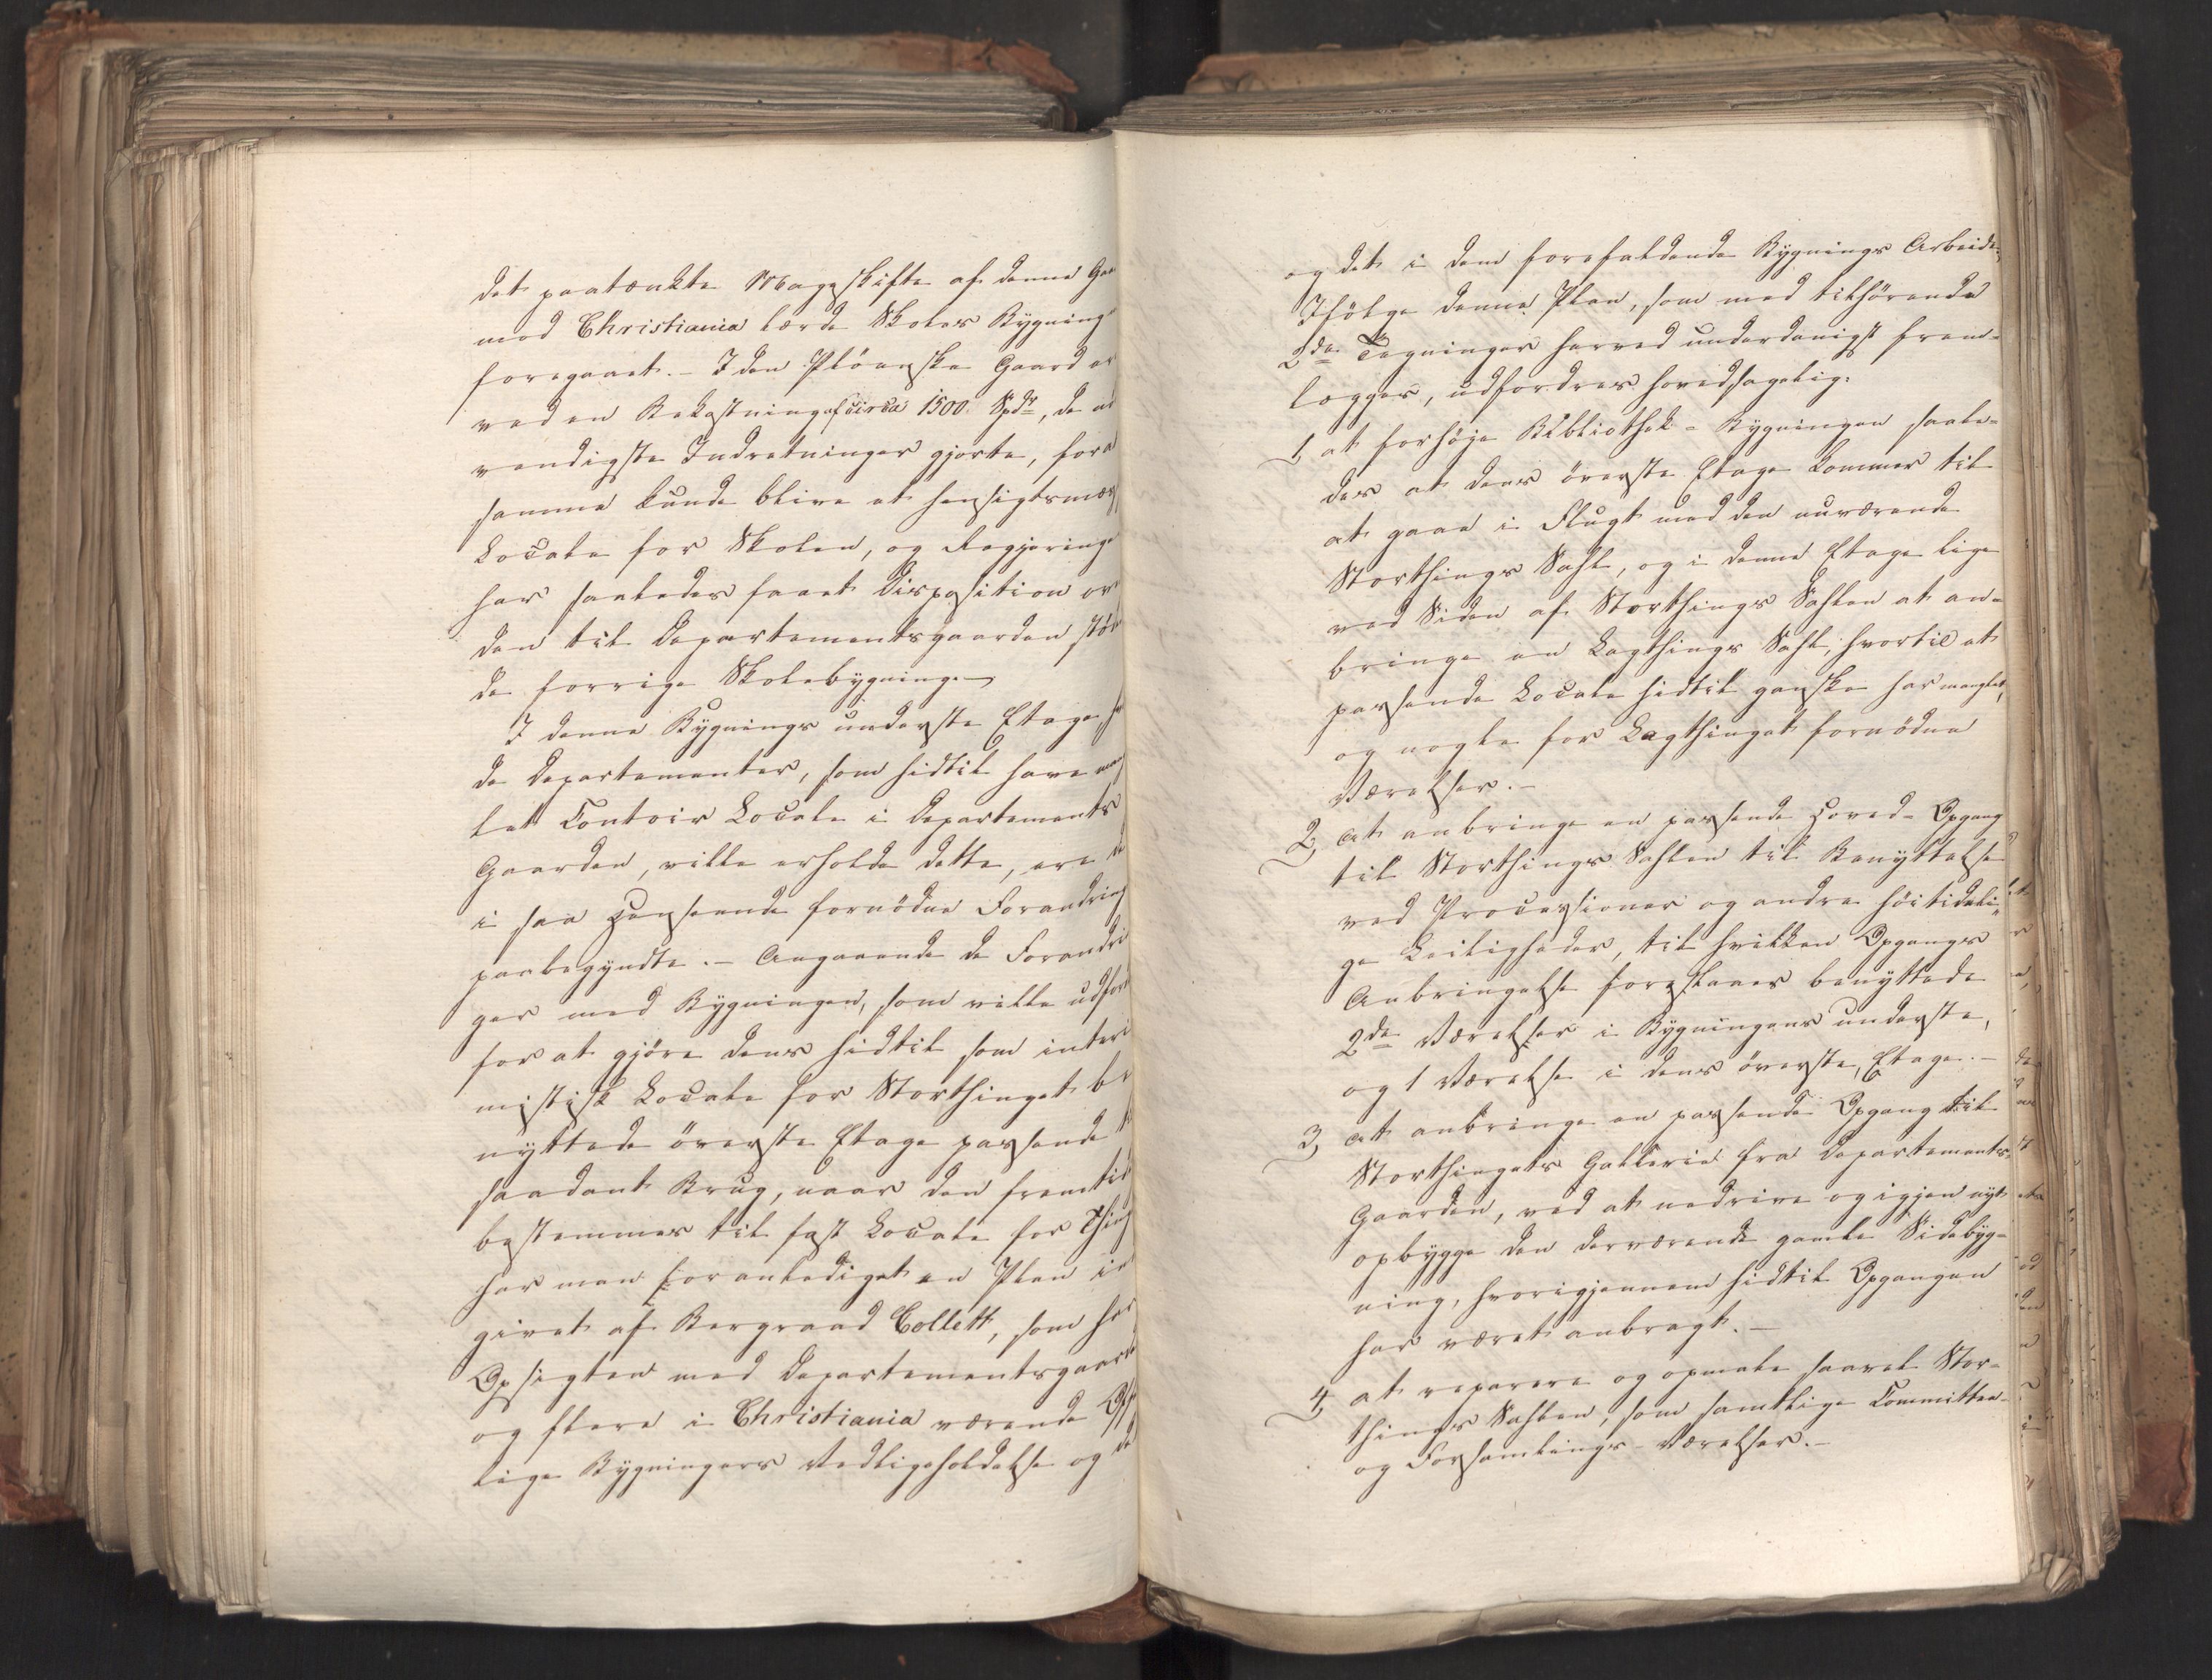 det paatænkte Mageskifte af denne Gaa
med Christiania lærde Skoles Bygning
foregaaet. – I den Plöenske Gaard er
ved en Bekostning af circa 1500 Spdr, de nöd
vendigste Indretninger gjorte, for a
samme kunde blive et hensigtsmæs
Locale for Skolen, og Regjeringe
har saaledes faaet Disposition ove
den til Departementsgaarden stöd
de forrige Skolebygning.
I denne Bygnings underste Etage, h
de Departementer, som hidtil have man
let Contoir Locale i Departements
Gaarden, ville erholde dette, ere de
i saa Henseende fornödne Forandring
paabegyndte. – Angaaende de Forandri
ger med Bygningen, som ville udfor
for at gjöre dens hidtil som interi
mistisk Locale for Storthinget be
nyttede överste Etage passende t
saadant Brug, naar den fremtid
bestemmes til fast Locale for Thing
har man foranlediget en Plan in
givet af Bergraad Collett, som har
Opsigten med Departementsgaard
og flere i Christiania værende Off
lige Bygningers Vedligeholdelse og de
og det i dem forefaldende Bygnings Arbeide.
Ifölge denne Plan, som med tilhörende
2de Tegninger herved underdanigst frem-
lægges, udfordres hovedsagelig:
1, at forhöje Bibliothek-Bygningen saale-
des at dens överste Etage kommer til
at gaae i Flugt med den nuværende
Storthings Sahl, og i denne Etage lige
ved Siden af Storthings Sahlen at an-
bringe en Lagthings Sahl, hvortil et
passende Locale hidtil ganske har manglet,
og nogle for Lagthinget fornödne
Værelser. –
2, at anbringe en passende Hoved-Opgang
til Storthings Sahlen til Benyttelse
ved Processioner og andre höitideli-
ge Leiligheder, til hvilken Opgangs
Anbringelse foreslaaes benyttede
2de Værelser i Bygningens underste,
og 1 Værelse i dens överste, Etage. –
3, at anbringe en passende Opgang til
Storthingets Gallerie fra Departements-
Gaarden, ved at nedrive og igjen nyt
opbygge den derværende gamle Sidebyg-
ning, hvorigjennem hidtil Opgangen
har været anbragt. –
4, at reparere og opmale saavel Stor-
things Sahlen, som samtlige Committee-
og Forsamlings-Værelser. –